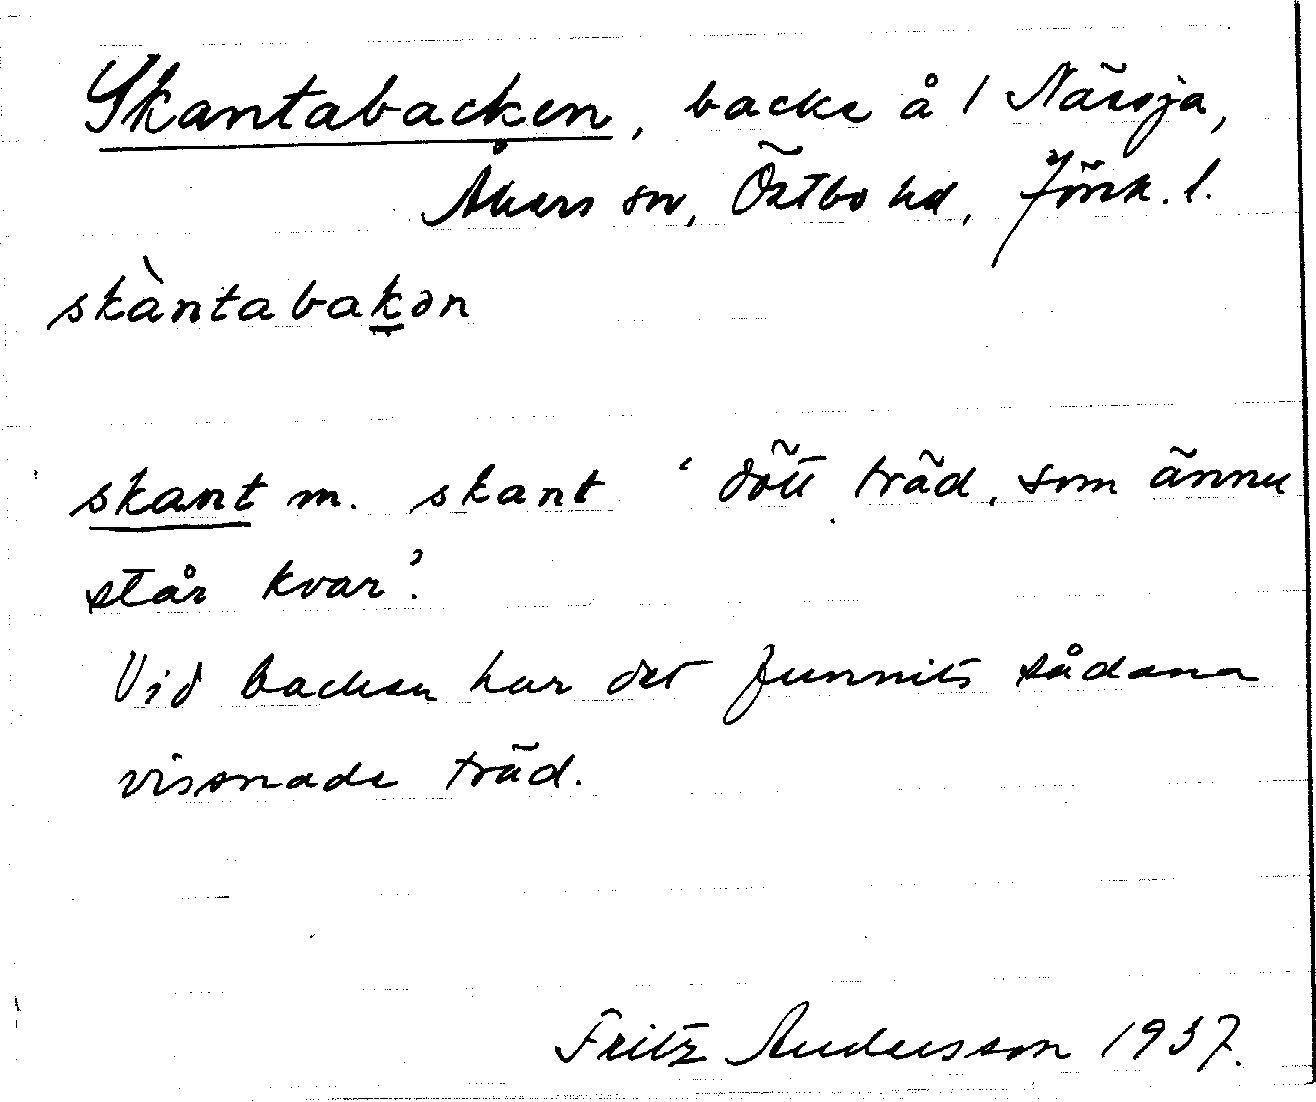 Skantabacken, backe å 1 Näroja,
Åkers sn, Östbo hd, Jönk. l.
skàntabakən
skant m. skant ‘dött träd, som ännu
står kvar’.
Vid backen har det funnits sådana
vissnade träd.
Fritz Andersson 1937.